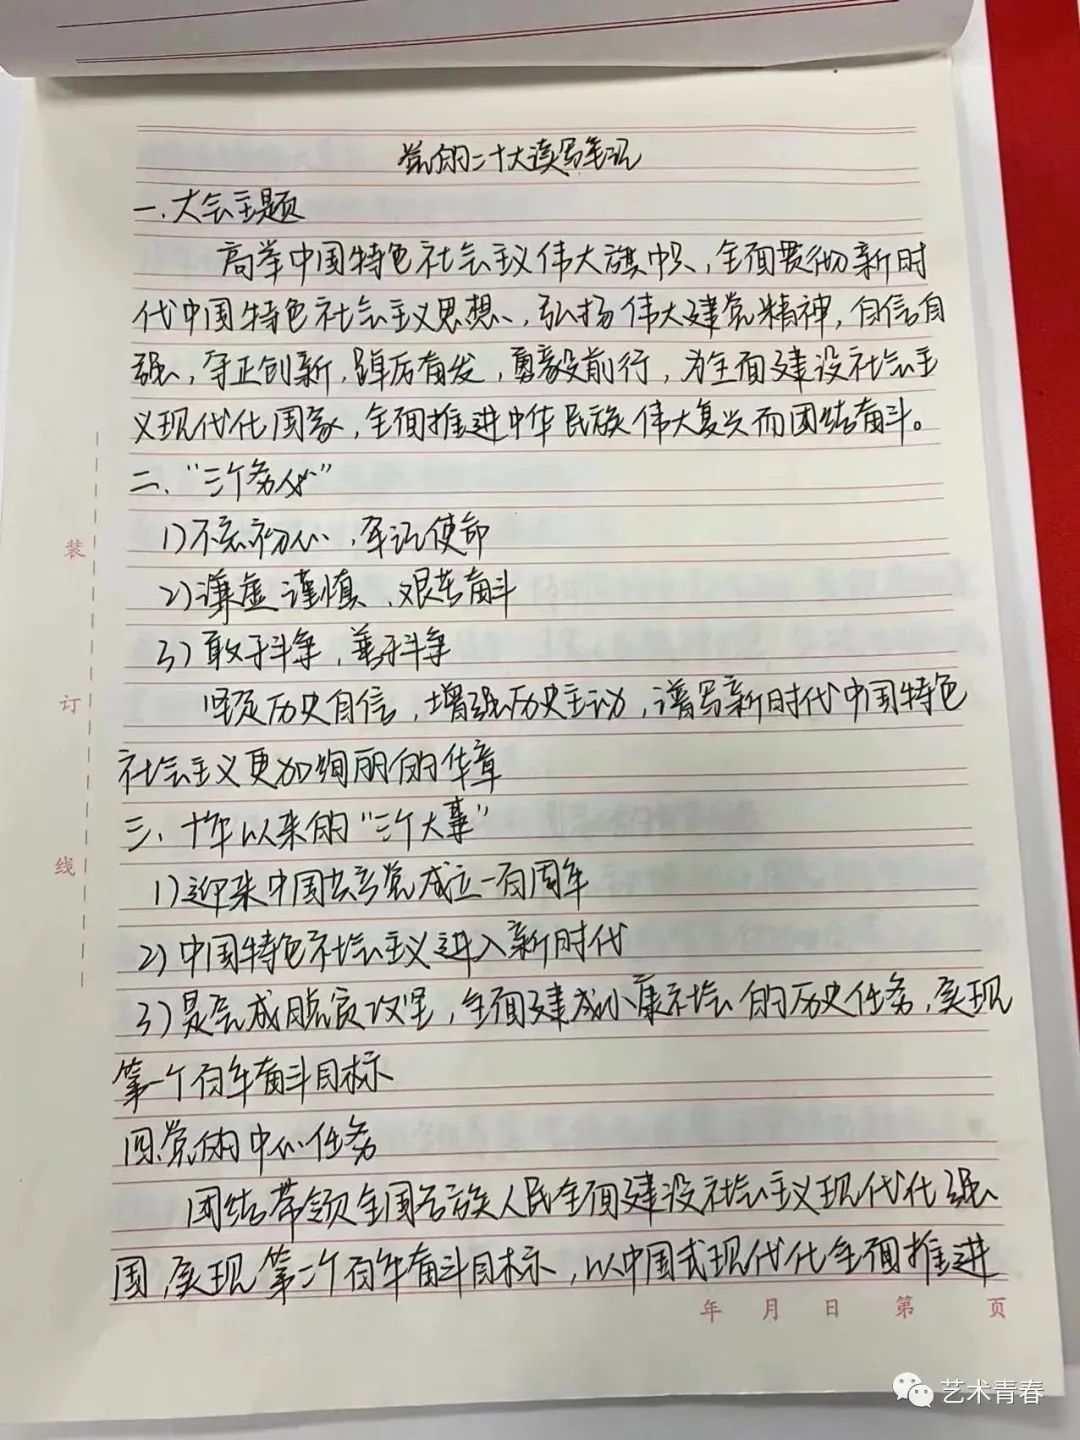 党的二十大读写笔记
一、大会主题
高举中国特色社会主义伟大旗帜、全面贯彻新时
代中国特色社会主义思想、弘扬伟大建党精神,自信自
强、守正创新,踔厉奋发,勇毅前行,为全面建设社会主
义现代化国家,全面推进中华民族伟大复兴而团结奋斗。
二、“三个务必”
1)不忘初心、牢记使命
2)谦虚谨慎、艰苦奋斗
3)敢于斗争,善于斗争
坚定历史自信,增强历史主动,谱写新时代中国特色
社会主义更加绚丽的华章
三、十年以来的“三个大事”
1)迎来中国共产党成立一百周年
2)中国特色社会主义进入新时代
3)是完成脱贫攻坚,全面建成小康社会的历史任务,实现
第一个百年奋斗目标
四.党的中心任务
团结带领全国各族人民全面建设社会主义现代化强
国,实现第二个百年奋斗目标,以中国式现代化全面推进
装
订
线
年 月 日 第 页
艺术青春